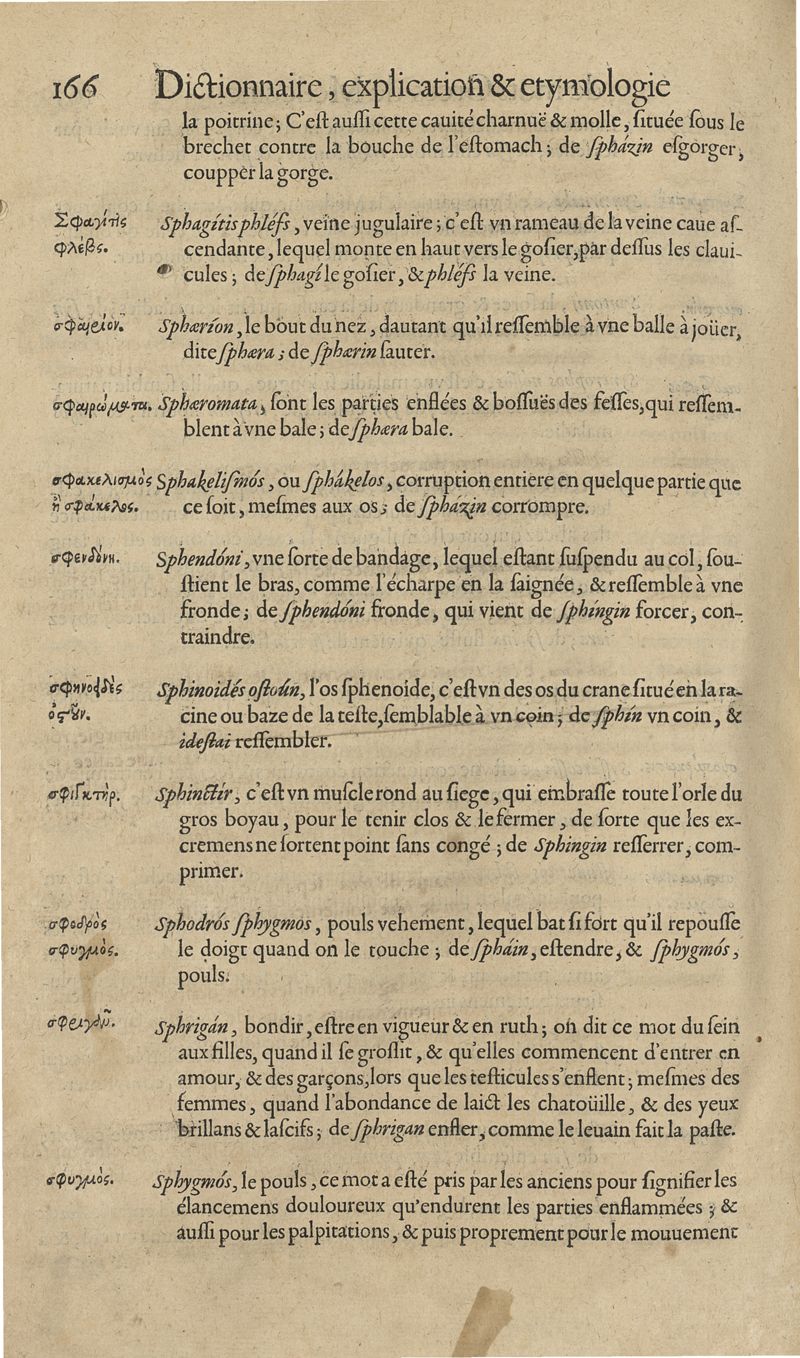 166 Dictionnaire, explication & etymologie
la poitrine; C'eſt auſſi cette cauité charnuë & molle, ſituée ſous le
brechet contre la bouche de l'eſtomach; de ſpházin eſgorger,
coupper la gorge.
Σφαγίτις Sphagítis phléſs, veine jugulaire; c'eſt vn rameau de la veine caue aſ-
φλέβς. cendante, lequel monte en haut vers le goſier, par deſſus les claui-
cules; de ſphagí le goſier, & phléſs la veine.
σφαιρίον. Sphæríon, le bout du nez, dautant qu'il reſſemble à vne balle à joüer,
dite ſphæra; de ſphærin ſauter.
σφαιρώματα. Sphæromata, ſont les parties enflées & boſſuës des feſſes, qui reſſem-
blent à vne bale; de ſphæra bale.
σφακελισμὸς Sphakeliſmós, ou ſphákelos, corruption entiere en quelque partie que
ἢ σφάκελος. ce ſoit, meſmes aux os; de ſpházin corrompre.
σφενδόνη. Sphendóni, vne ſorte de bandage, lequel eſtant ſuſpendu au col, ſou-
ſtient le bras, comme l'écharpe en la ſaignée, & reſſemble à vne
fronde; de ſphendóni fronde, qui vient de ſphíngin forcer, con-
traindre.
σφηνοειδὲς Sphinoidés oſtoún, l'os ſphenoide, c'eſt vn des os du crane ſitué en la ra-
ὀστοῦν. cine ou baze de la teſte, ſemblable à vn coin; de ſphín vn coin, &
ideſtai reſſembler.
σφιγκτὴρ. Sphinctír, c'eſt vn muſcle rond au ſiege, qui embraſſe toute l'orle du
gros boyau, pour le tenir clos & le fermer, de ſorte que les ex-
cremens ne ſortent point ſans congé; de Sphingin reſſerrer, com-
primer.
σφοδρὸς Sphodrós ſphygmos, pouls vehement, lequel bat ſi fort qu'il repouſſe
σφυγμὸς. le doigt quand on le touche; de ſpháin, eſtendre, & ſphygmós,
pouls.
σφριγᾶν. Sphrigán, bondir, eſtre en vigueur & en ruth; on dit ce mot du ſein
aux filles, quand il ſe groſſit, & qu'elles commencent d'entrer en
amour, & des garçons, lors que les teſticules s'enflent; meſmes des
femmes, quand l'abondance de laict les chatoüille, & des yeux
brillans & laſcifs; de ſphrigan enfler, comme le leuain fait la paſte.
σφυγμὸς. Sphygmós, le pouls, ce mot a eſté pris par les anciens pour ſignifier les
élancemens douloureux qu'endurent les parties enflammées; &
auſſi pour les palpitations, & puis proprement pour le mouuement